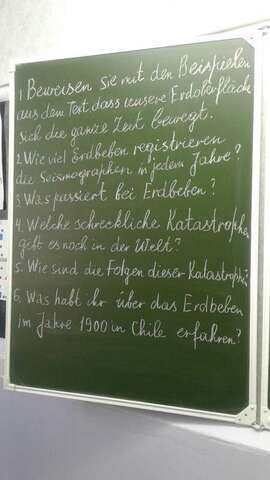 1 Beweisen sie mit den Beispielen
aus dem Text dass unsere Erdoberfläche
sich die ganze Zeit bewegt.
2. Wie viel Erdbeben registrieren
die Seismographen in jedem Jahre?
3 Was passiert bei Erdbeben?
4. Welche schreckliche Katastrophen
gibt es noch in der Welt?
5. Wie sind die Folgen dieser Katastrophe?
6. Was habt ihr über das Erdbeben
im Jahre 1900 in Chile erfahren?